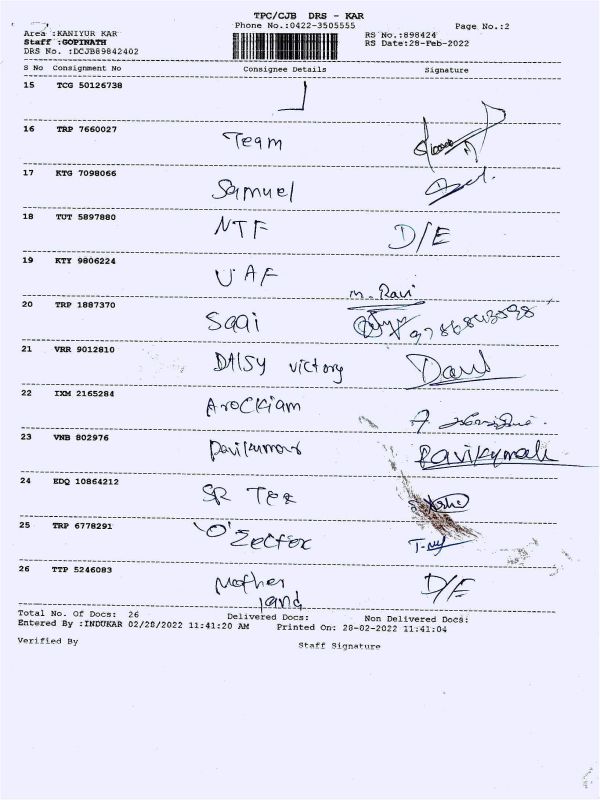 TPC/CJB DRS - KAR
Phone No.:0422-3505555 Page No.:2
Area :KANIYUR KAR RS No.:898424
Staff :GOPINATH RS Date:28-Feb-2022
DRS No. :DCJB89842402
S No Consignment No Consignee Details Signature
15 TCG 50126738
16 TRP 7660027 Team
17 KTG 7098066 Samuel
18 TUT 5897880 NTF D/E
19 KTY 9806224 UAF
m. Ravi
20 TRP 1887370 Sagi
21 VRR 9012810 DAISY victory
22 IXM 2165284 Arockiam
23 VNB 802976 Pavikumar Pavikumar
24 EDQ 10864212 SR Tex
25 TRP 6778291 'O' Zeltex
26 TTP 5246083 Mother D/E
land
Total No. Of Docs: 26 Delivered Docs: Non Delivered Docs:
Entered By :INDUKAR 02/28/2022 11:41:20 AM Printed On: 28-02-2022 11:41:04
Verified By Staff Signature